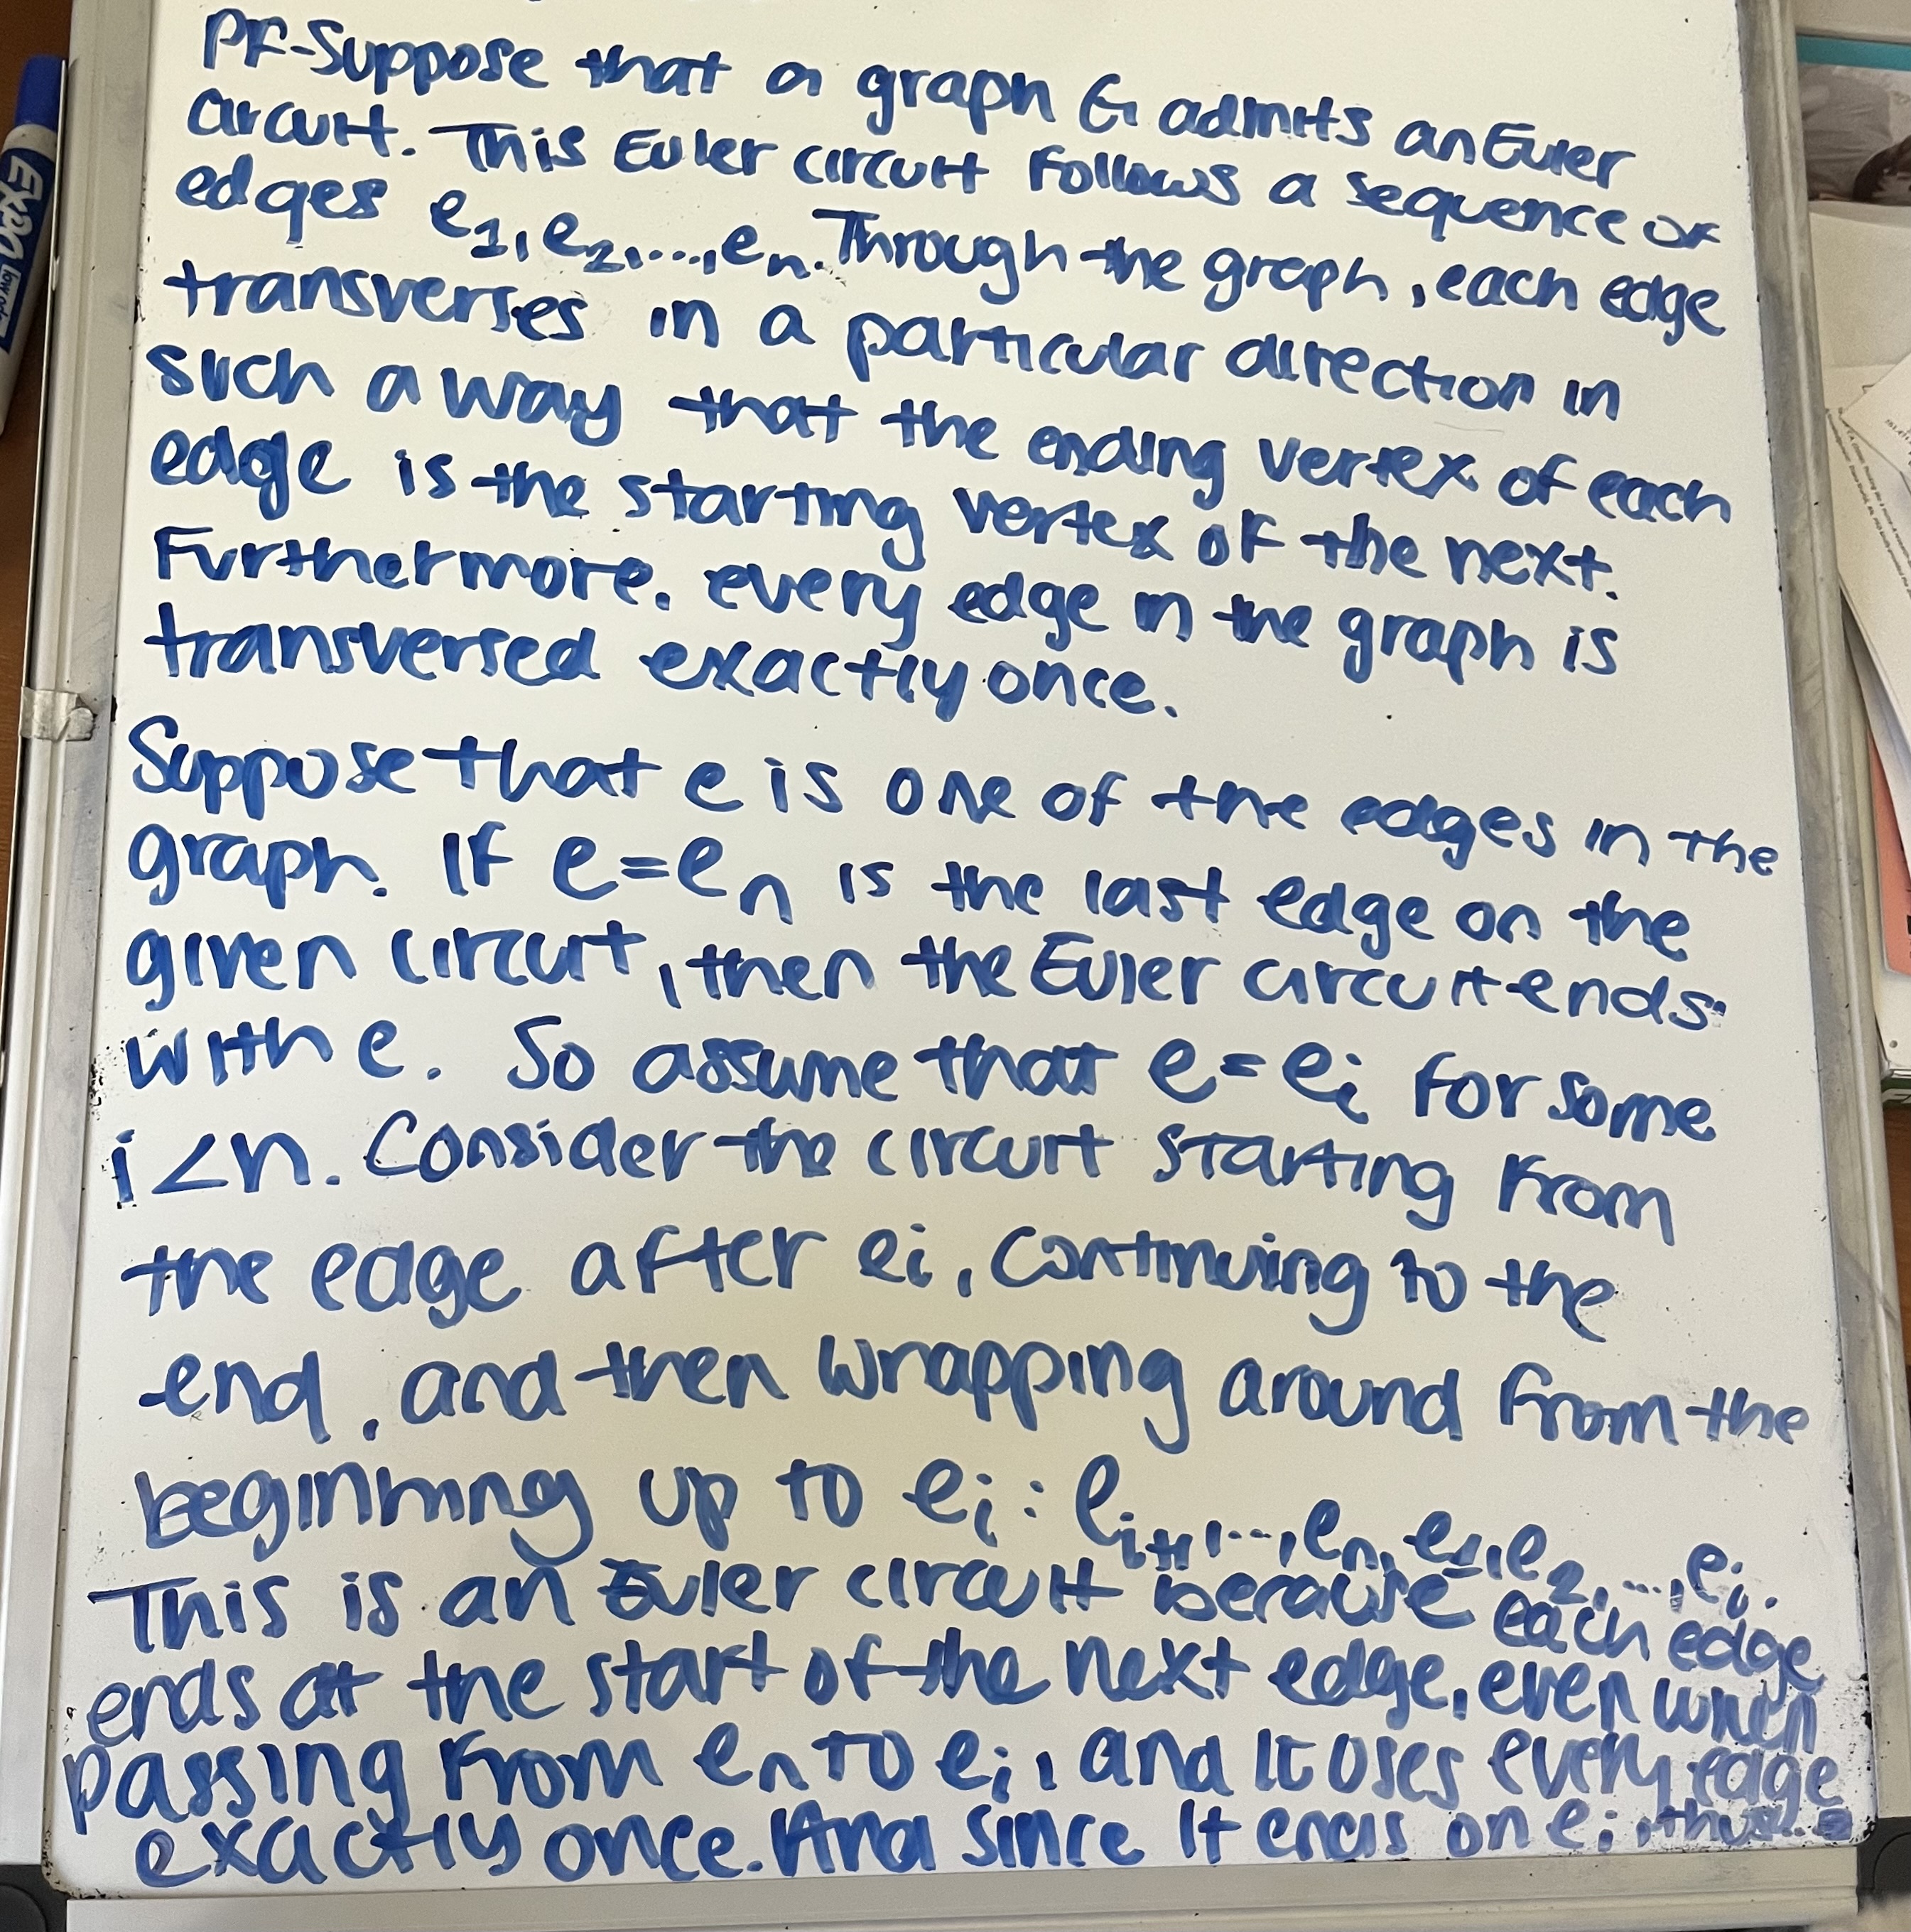 PF-Suppose that a graph G admits an Euler
circuit. This Euler circuit follows a sequence of
edges e1, e2, ..., en. Through the graph, each edge
transverses in a particular direction in
such a way that the ending vertex of each
edge is the starting vertex of the next.
Furthermore, every edge in the graph is
transversed exactly once.
Suppose that e is one of the edges in the
graph. If e=en is the last edge on the
given circuit, then the Euler circuit ends
with e. So assume that e=ei for some
i<n. Consider the circuit starting from
the edge after ei, continuing to the
end, and then wrapping around from the
beginning up to ei: ei+1, ..., en, e1, e2, ..., ei.
This is an Euler circuit because each edge
ends at the start of the next edge, even when
passing from en to ei, and it uses every edge
exactly once. And since it ends on ei, thus...
EXPO
low od